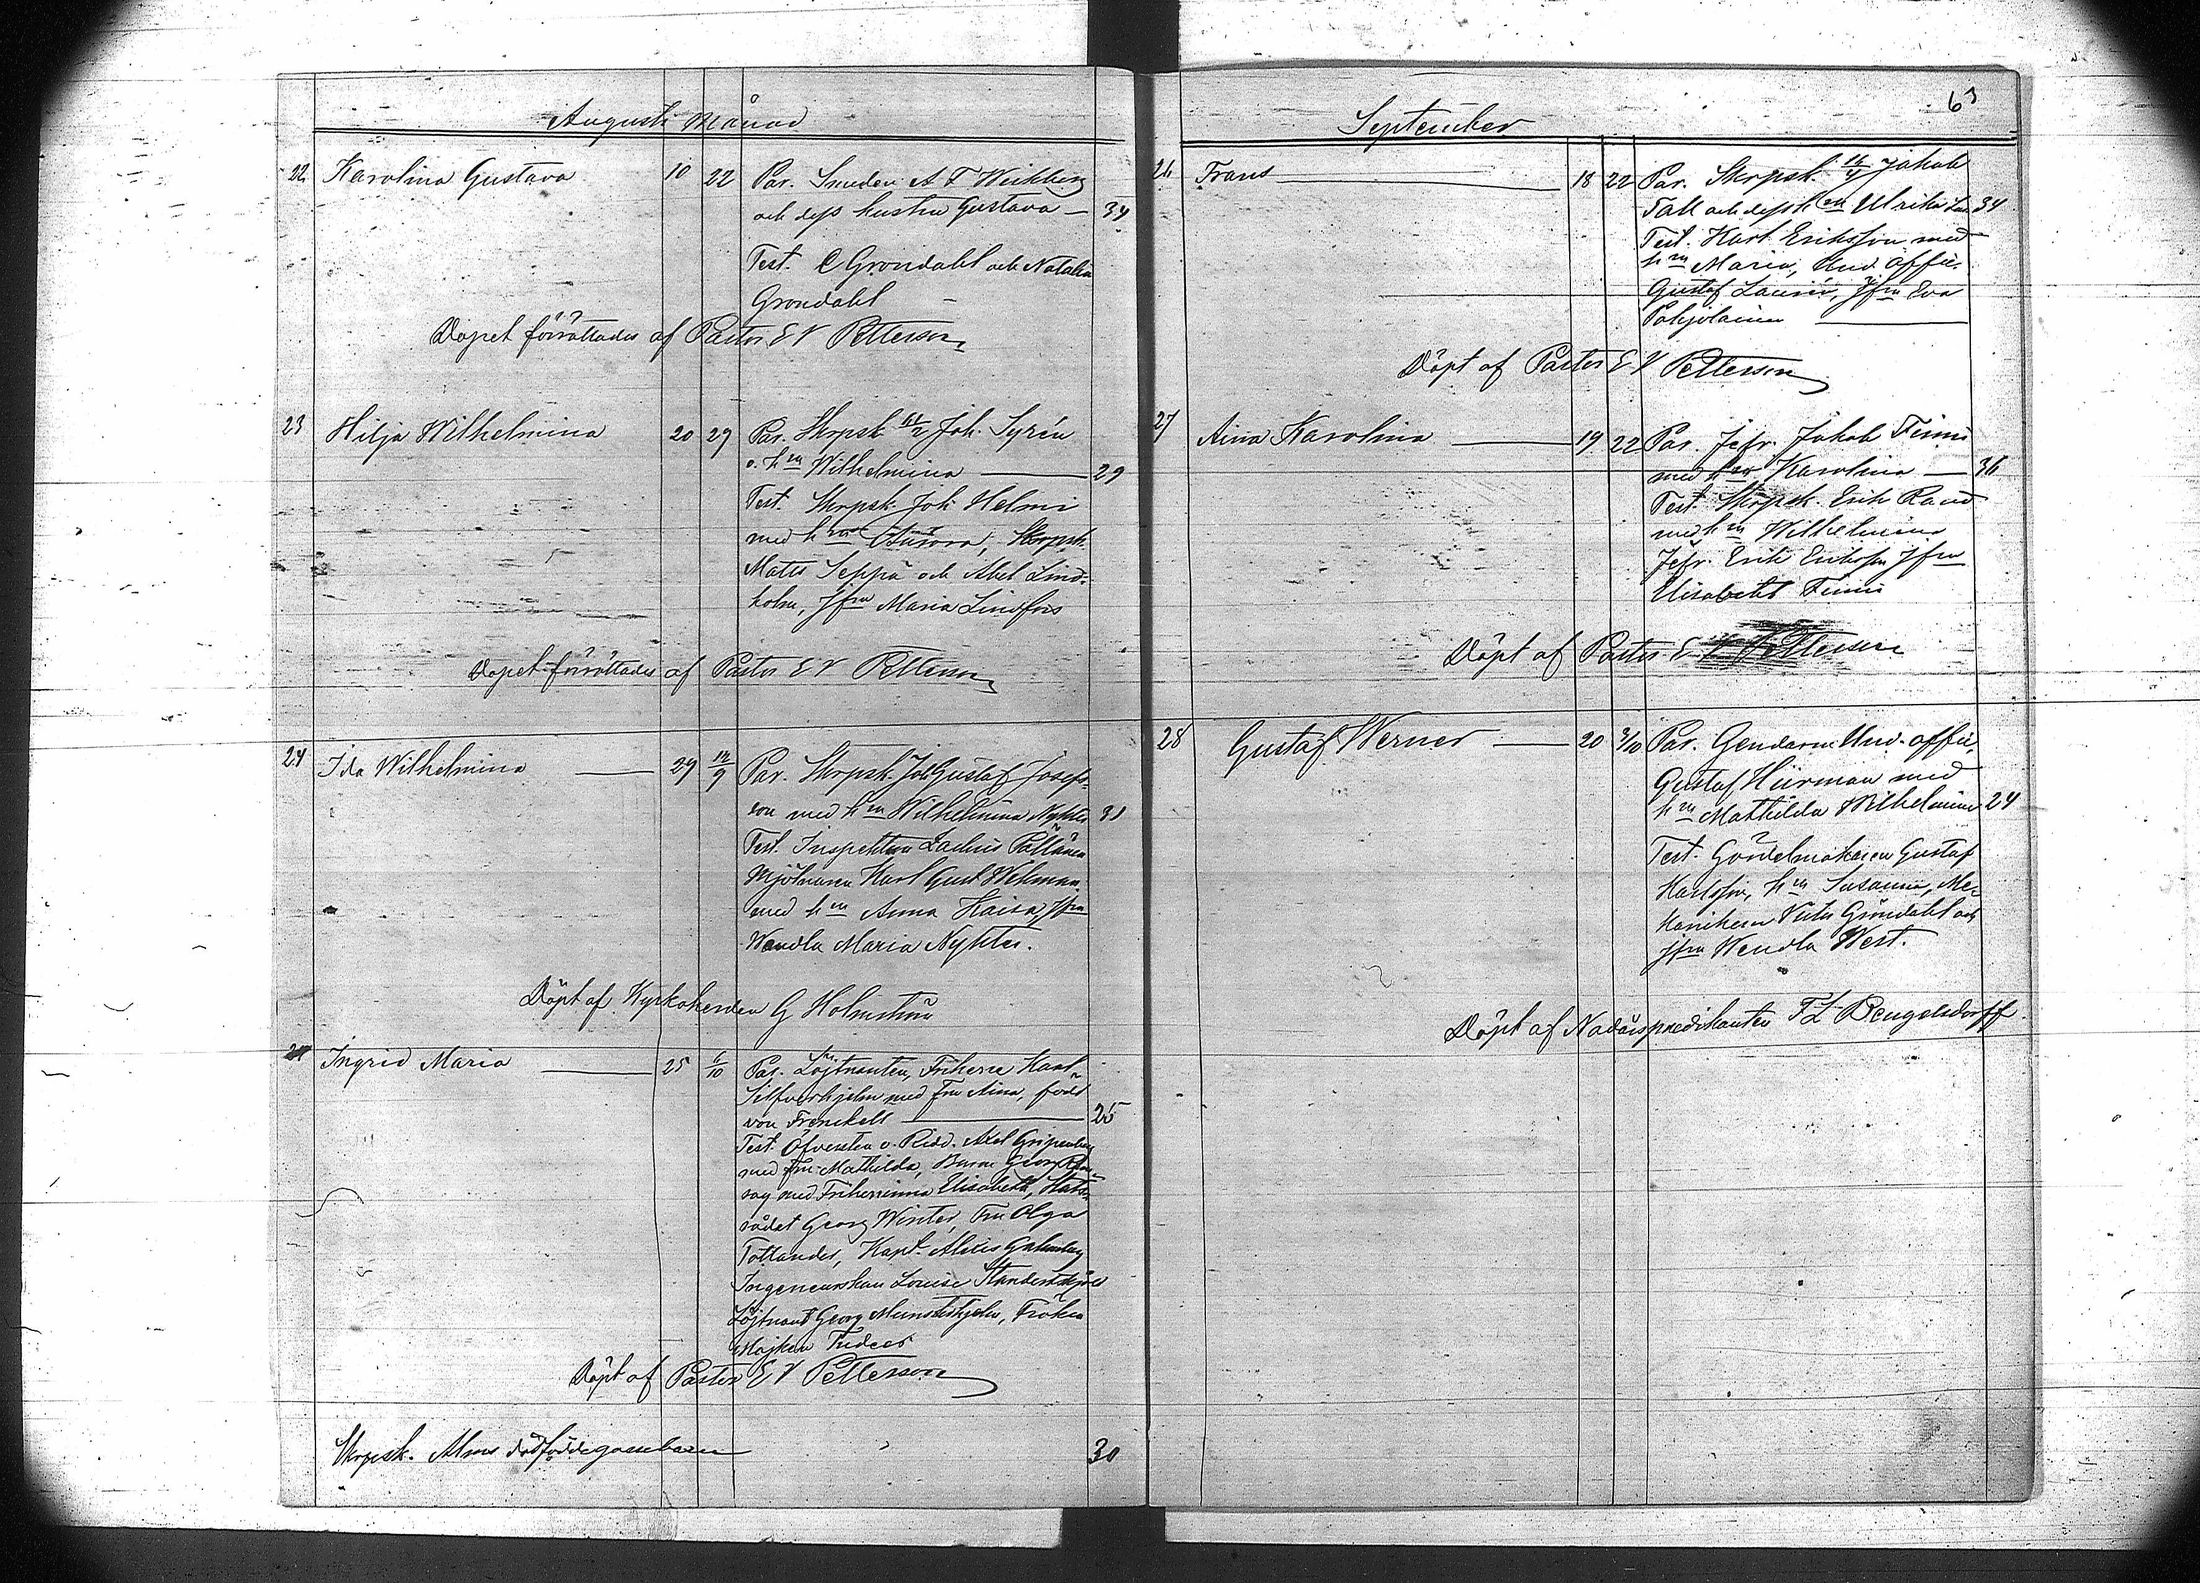 Augusti Månad
22 Karolina Gustava 10 22 Par. Smeden A F Weikberg
och dess hustru Gustava — 34
Test. C Grondahl och Natalia
Grondahl
Dopet förrättades af Pastor E V Petterson
23 Hilja Wilhelmina 20 29 Par. Skrpsk. Joh. Syrén
o. hm Wilhelmina — 29
Test. Skrpsk. Joh. Helmi
med hm Aurora, Skrpsk.
Matts Seppä och Abel Lind-
holm, Jfru Maria Lindfors
Dopet förrättades af Pastor E V Petterson
24 Ida Wilhelmina — 29 12/9 Par. Skrpsk. Joh Gustaf Josefs-
son med hm Wilhelmina Nykter 31
Test. Inspektorn Pällänen
Mjölnaren Karl Gust Wekman
med hm Anna Kaisa, Jfru
Wendla Maria Nykter.
Döpt af Kyrkoherden G Holmström
Ingrid Maria — 25 6/10 Par. Löjtnanten, Friherre Karl
Silfverhjelm med Fru Aina, född
von Frenckell — 25
Test. Öfversten o. Ridd. Axel Gripenberg
med Fru Mathilda, Baron Georg Ram-
say med Friherrinna Elisabeth, Stats-
rådet Georg Winter, Fru Olga
Tollander, Kapt. Alexis Gahmberg
Ingeneurskan Louise Standertskjöld
Löjtnant Georg Munsterhjelm, Fröken
Majken
Döpt af Pastor E V Petterson
Skrpsk. Alms dödfödda gossebarn 30
63
September
26 Frans — 18 22 Par. Skrpsk. Jakob
Tall och dess h Ulrika 34
Test. Karl Eriksson med
hm Maria, Und. offic.
Gustaf Laurén, Jfru Eva
Pohjolainen —
Döpt af Pastor E V Petterson
27 Aina Karolina — 19 22 Par. Jefr. Jakob Finni
med hm Karolina — 36
Test. Skrpsk. Erik Rand
med hm Wilhelmina
Jefr. Erik Eriksson Jfru
Elisabeth Finni
Döpt af Pastor E V Petterson
28 Gustaf Werner — 20 3/10 Par. Gendarm Und. offic.
Gustaf Hiirman med
hm Mathilda Wilhelmina 24
Test. Gördelmakaren Gustaf
Karlsson, hm Susanna, Me-
kanikern Gröndahl och
Jfru Wendla West.
Döpt af Nådårspredikanten F L Bengelsdorff